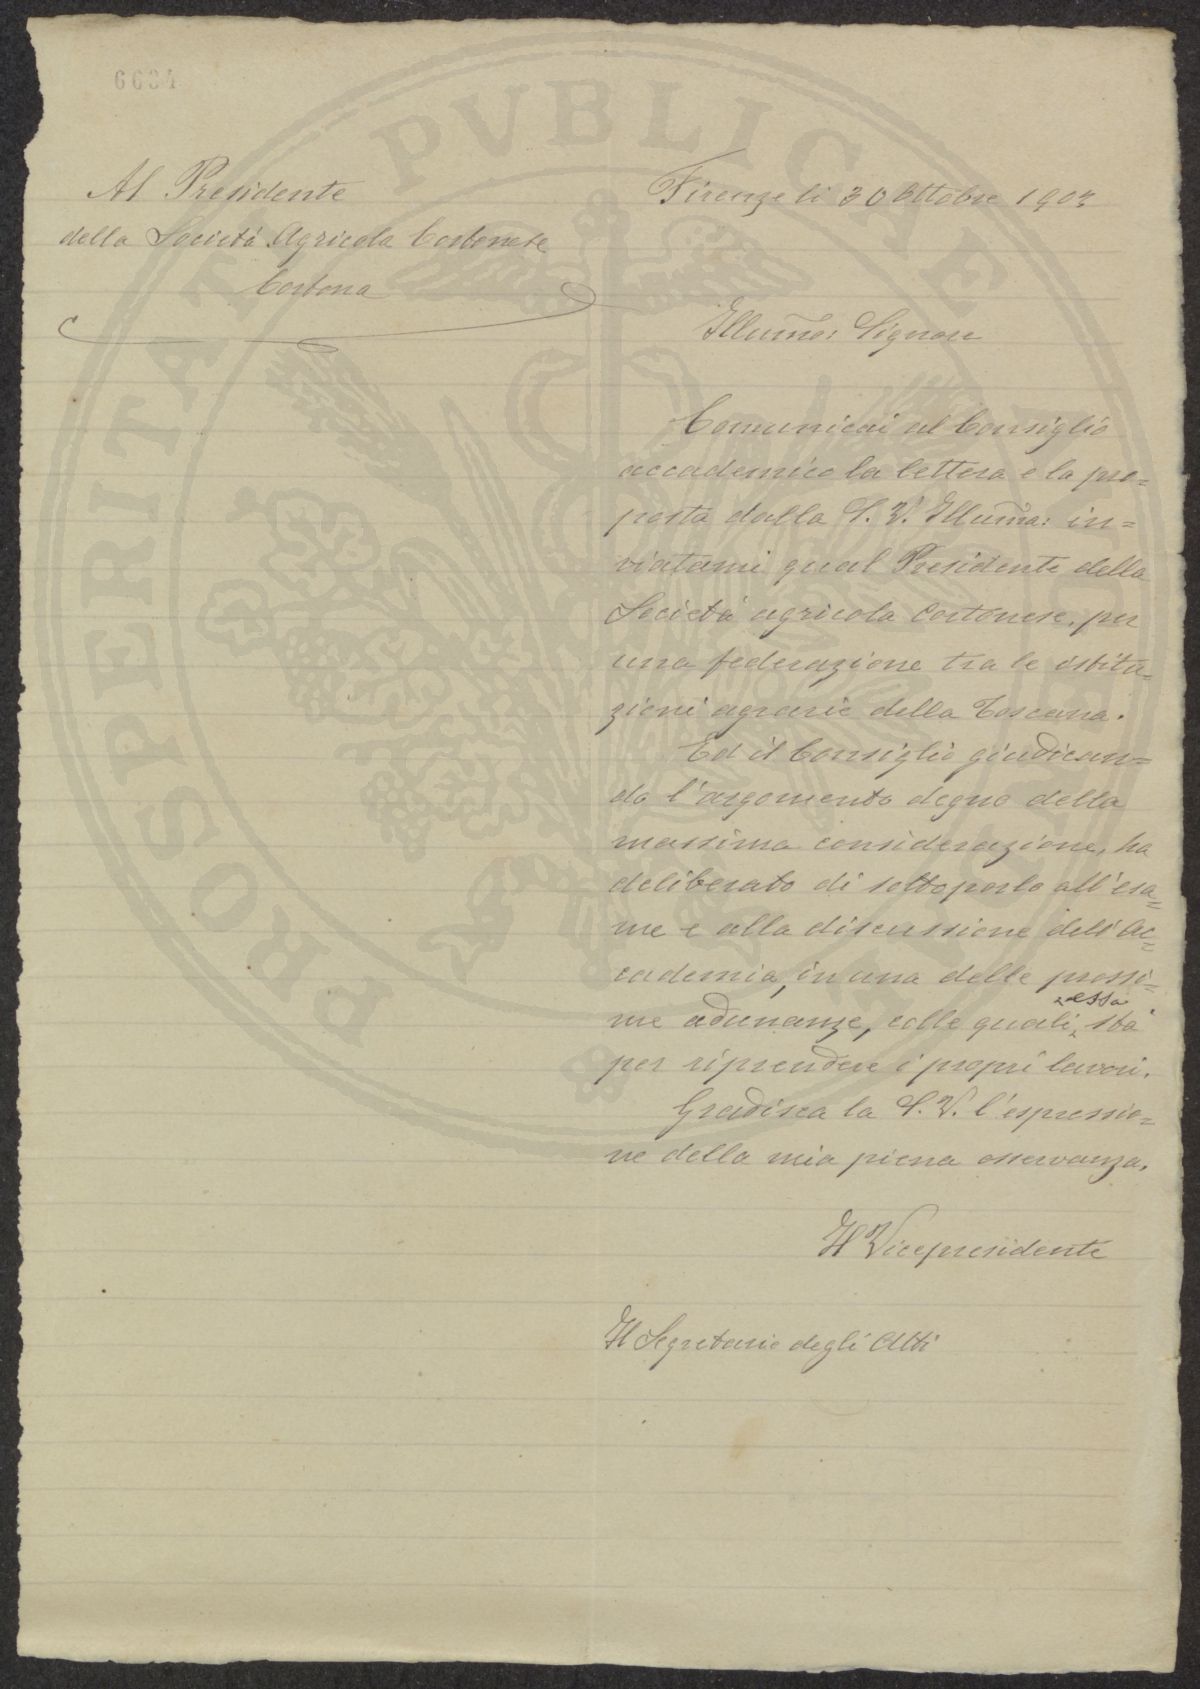 6634
Al Presidente
della Società Agricola Cortonese
Cortona
Firenze li 30 Ottobre 1903
Illumo: Signore
Comunicai al Consiglio
accademico la lettera e la pro=
posta dalla S. V. Illuma: in=
viatami qual Presidente della
Società agricola Cortonese, per
una federazione tra le istitu=
zioni agrarie della Toscana.
Ed il Consiglio giudican=
do l'argomento degno della
massima considerazione, ha
deliberato di sottoporlo all'esa=
me e alla discussione dell'Ac=
cademia, in una delle prossi=
me adunanze, colle quali essa sta
per riprendere i propri lavori.
Gradisca la S. V. l'espressio=
ne della mia piena osservanza.
Il Vicepresidente
Il Segretario degli Atti
PROSPERITATI PVBLICAE